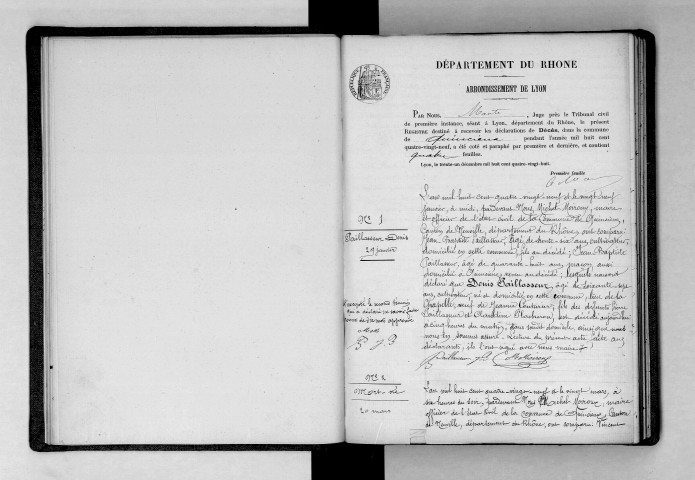 DÉPARTEMENT DU RHONE
ARRONDISSEMENT DE LYON
PAR NOUS, , Juge près le Tribunal civil
de première instance, séant à Lyon, département du Rhône, le présent
REGISTRE destiné à recevoir les déclarations de Décès, dans la commune
de Quincieux pendant l'année mil huit cent
quatre-vingt-neuf, a été coté et paraphé par première et dernière, et contient
quatre feuilles.
Lyon, le trente-un décembre mil huit cent quatre-vingt-huit.
Première feuille
N° 1
Paillasseur Denis
29 janvier
L'an mil huit cent quatre vingt neuf et le vingt neuf
janvier, à midi, pardevant Nous Michel , maire
et officier de l'état civil de la Commune de Quincieux,
Canton de Neuville, département du Rhône, ont comparu
Jean Baptiste Paillasseur, âgé de trente six ans, cultivateur,
domicilié en cette commune, fils du décédé; Jean Baptiste
Paillasseur, âgé de quarante huit ans, , aussi
domicilié à Quincieux, du décédé; lesquels nous ont
déclaré que Denis Paillasseur, âgé de soixante sept
ans, cultivateur, né et domicilié en cette commune, lieu de la
, veuf de Jeanne , fils des défunts
Paillasseur et Claudine , est décédé aujourd'hui
à cinq heures du matin, dans son domicile, ainsi que nous
nous en sommes assuré. Lecture du présent acte faite aux
déclarants, ils l'ont signé avec nous maire
Paillasseur
N° 2
Mort né
20 mars
L'an mil huit cent quatre vingt neuf et le vingt mars, à
six heures du soir, pardevant Nous Michel , maire
officier de l'état civil de la commune de Quincieux, Canton
de Neuville, département du Rhône, ont comparu: Vincent